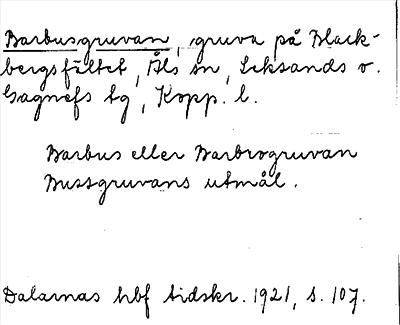 Barbusgruvan, gruva på Black-
bergsfältet, Åls sn, Leksands o.
Gagnefs tg, Kopp. l.
Barbus eller Barbrogruvan
Bustgruvans utmål.
Dalarnas hbf tidskr. 1921, s. 107.